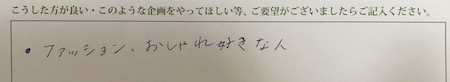 こうした方が良い・このような企画をやってほしい等、ご要望がございましたらご記入ください。
• ファッション、おしゃれ好きな人